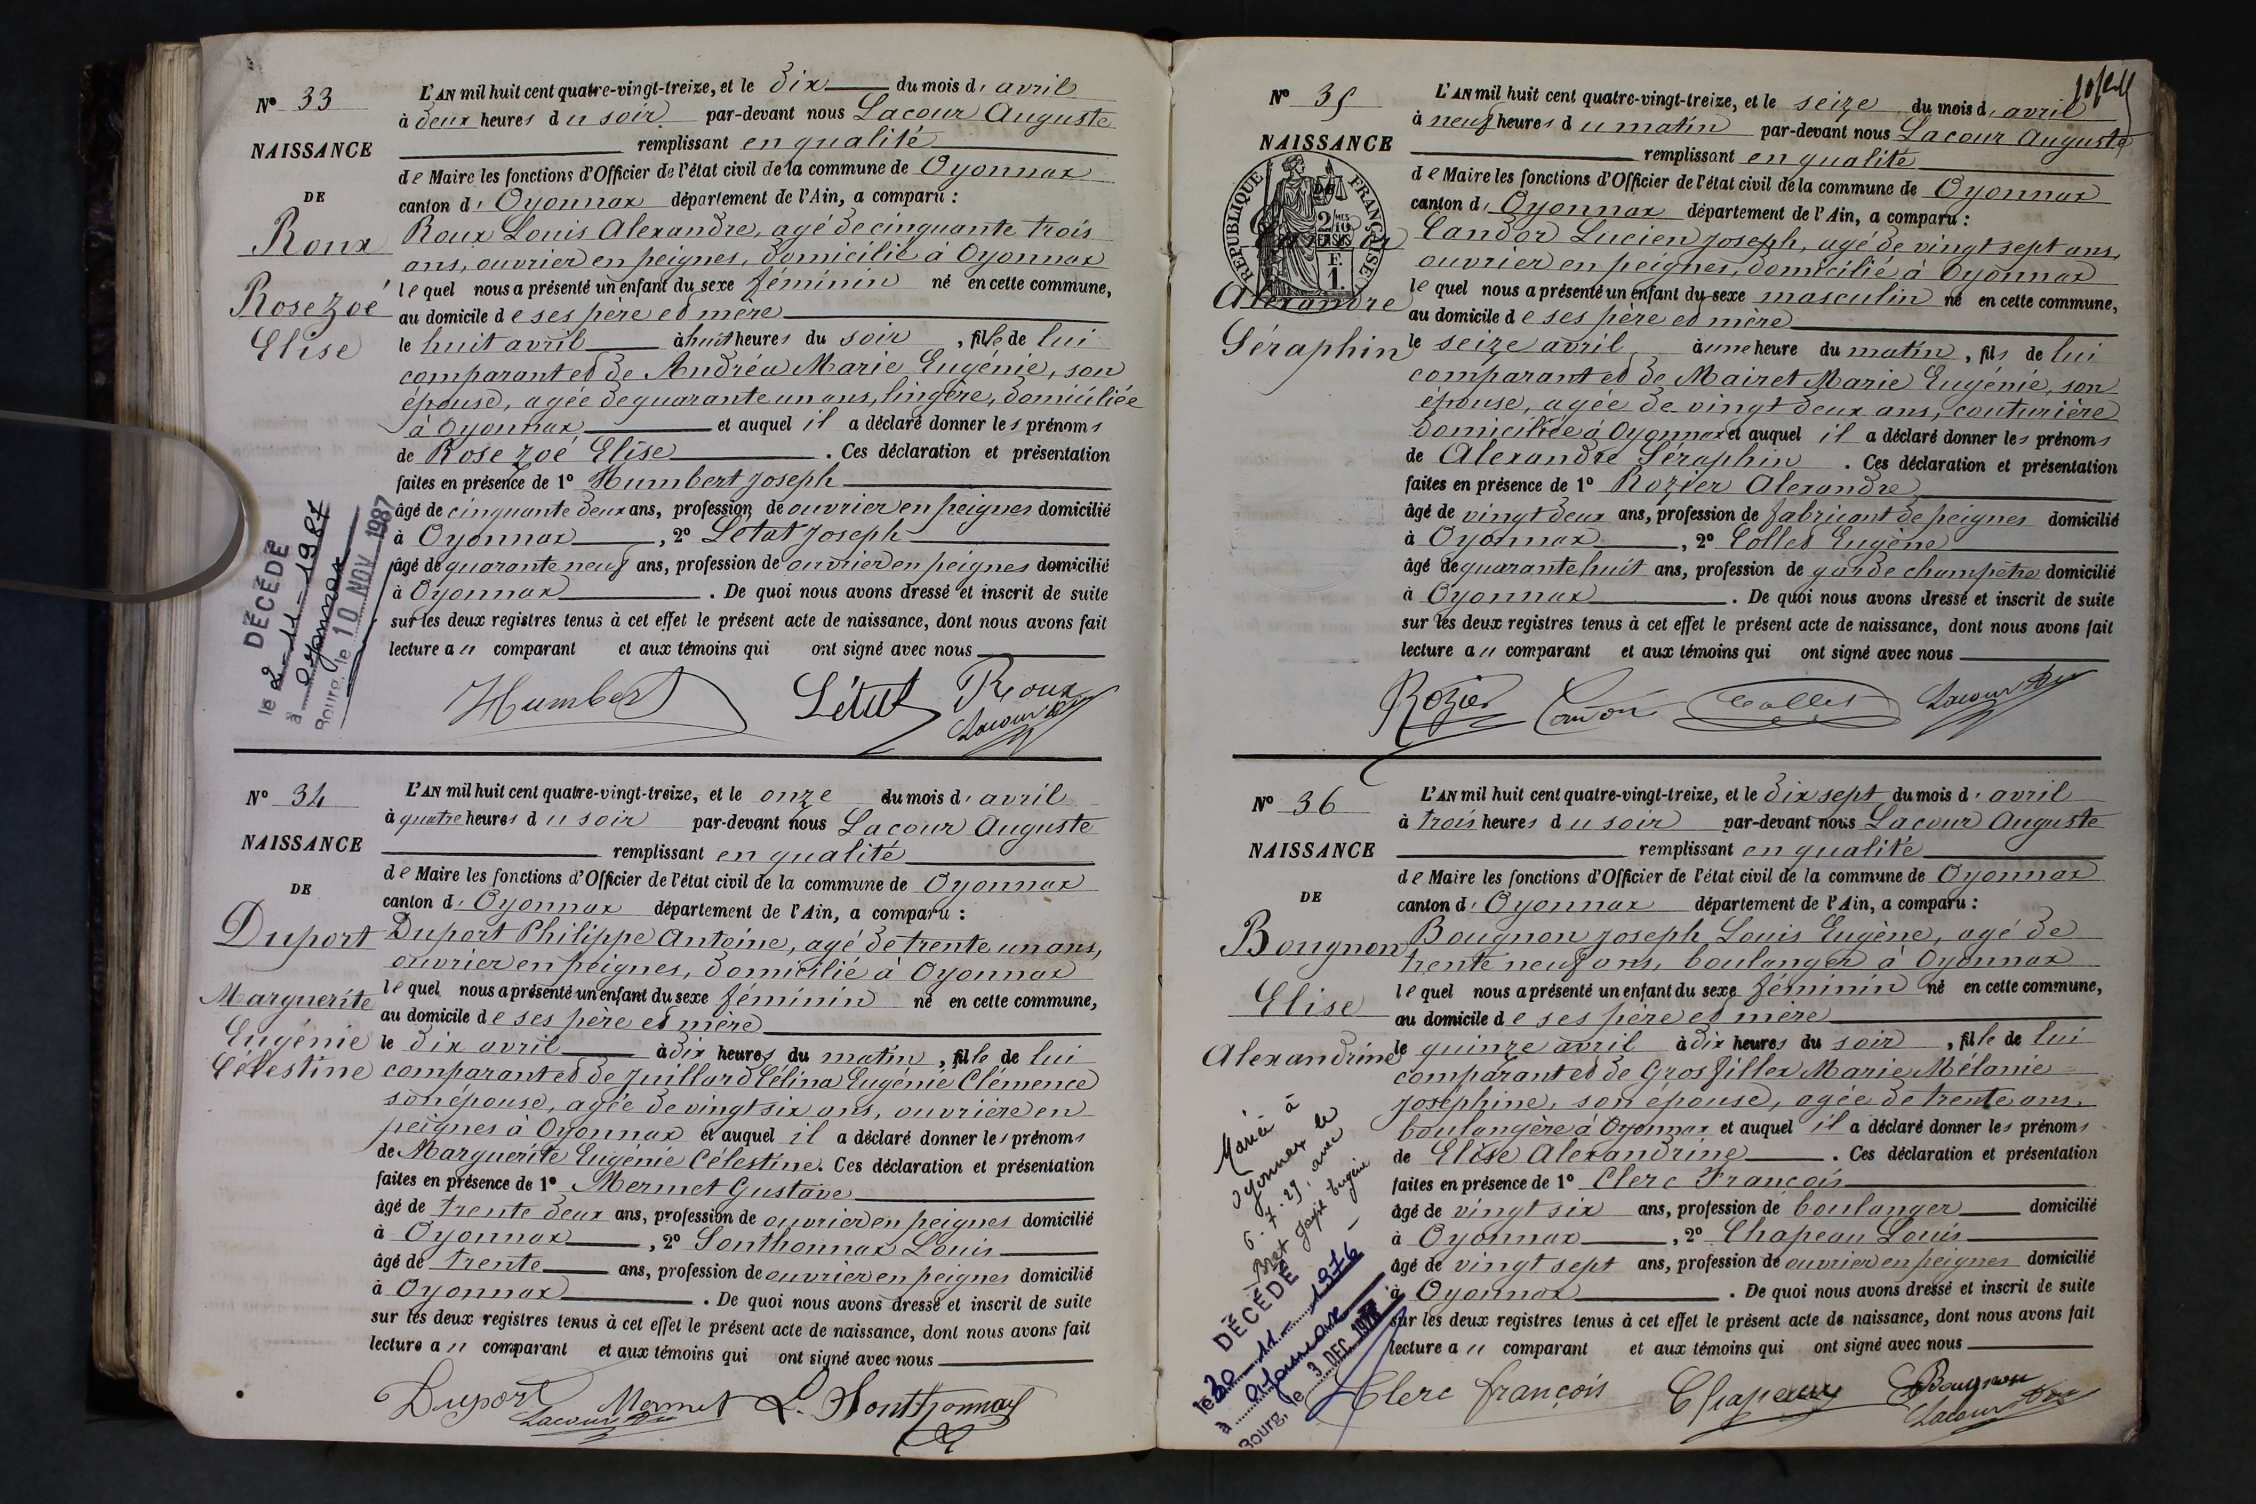 N° 33
NAISSANCE
DE
Roux
Rose Zoé
Elise
DÉCÉDÉ
le 2-11-1987
à Oyonnax
Bourg, le 10 NOV 1987
L'AN mil huit cent quatre-vingt-treize, et le dix du mois d'avril
à deux heures du soir par-devant nous Lacour Auguste
remplissant en qualité
de Maire les fonctions d'Officier de l'état civil de la commune de Oyonnax
canton d'Oyonnax département de l'Ain, a comparu :
Roux Louis Alexandre, agé de cinquante trois
ans, ouvrier en peignes, domicilié à Oyonnax
lequel nous a présenté un enfant du sexe féminin né en cette commune,
au domicile de ses père et mère
le huit avril à huit heures du soir, fille de lui
comparant et de Andréa Marie Eugénie, son
épouse, agée de quarante un ans, lingère, domiciliée
à Oyonnax et auquel il a déclaré donner les prénoms
de Rose Zoé Elise. Ces déclaration et présentation
faites en présence de 1° Humbert Joseph
âgé de cinquante deux ans, profession de ouvrier en peignes domicilié
à Oyonnax, 2° Létat Joseph
âgé de quarante neuf ans, profession de ouvrier en peignes domicilié
à Oyonnax. De quoi nous avons dressé et inscrit de suite
sur les deux registres tenus à cet effet le présent acte de naissance, dont nous avons fait
lecture au comparant et aux témoins qui ont signé avec nous
Humbert Létat Roux
Lacour
N° 34
NAISSANCE
DE
Duport
Marguerite
Eugénie
Célestine
L'AN mil huit cent quatre-vingt-treize, et le onze du mois d'avril
à quatre heures du soir par-devant nous Lacour Auguste
remplissant en qualité
de Maire les fonctions d'Officier de l'état civil de la commune de Oyonnax
canton d'Oyonnax département de l'Ain, a comparu :
Duport Philippe Antoine, agé de trente un ans,
ouvrier en peignes, domicilié à Oyonnax
lequel nous a présenté un enfant du sexe féminin né en cette commune,
au domicile de ses père et mère
le dix avril à dix heures du matin, fille de lui
comparant et de Juillard Célina Eugénie Clémence
son épouse, agée de vingt six ans, ouvrière en
peignes à Oyonnax et auquel il a déclaré donner les prénoms
de Marguerite Eugénie Célestine. Ces déclaration et présentation
faites en présence de 1° Mermet Gustave
âgé de trente deux ans, profession de ouvrier en peignes domicilié
à Oyonnax, 2° Sonthonnax Louis
âgé de trente ans, profession de ouvrier en peignes domicilié
à Oyonnax. De quoi nous avons dressé et inscrit de suite
sur les deux registres tenus à cet effet le présent acte de naissance, dont nous avons fait
lecture au comparant et aux témoins qui ont signé avec nous
Duport Mermet L. Sonthonnax
Lacour
N° 35
NAISSANCE
RÉPUBLIQUE FRANÇAISE
2/10 EN SUS
F. 1.
Alexandre
Séraphin
L'AN mil huit cent quatre-vingt-treize, et le seize du mois d'avril
à neuf heures du matin par-devant nous Lacour Auguste
remplissant en qualité
de Maire les fonctions d'Officier de l'état civil de la commune de Oyonnax
canton d'Oyonnax département de l'Ain, a comparu :
Candor Lucien Joseph, agé de vingt sept ans,
ouvrier en peignes, domicilié à Oyonnax
lequel nous a présenté un enfant du sexe masculin né en cette commune,
au domicile de ses père et mère
le seize avril à une heure du matin, fils de lui
comparant et de Mairet Marie Eugénie, son
épouse, agée de vingt deux ans, couturière
domiciliée à Oyonnax et auquel il a déclaré donner les prénoms
de Alexandre Séraphin. Ces déclaration et présentation
faites en présence de 1° Rozier Alexandre
âgé de vingt deux ans, profession de fabricant de peignes domicilié
à Oyonnax, 2° Collet Eugène
âgé de quarante huit ans, profession de garde champêtre domicilié
à Oyonnax. De quoi nous avons dressé et inscrit de suite
sur les deux registres tenus à cet effet le présent acte de naissance, dont nous avons fait
lecture au comparant et aux témoins qui ont signé avec nous
Rozier Candor Collet Lacour
N° 36
NAISSANCE
DE
Bougnon
Elise
Alexandrine
Mariée à
Oyonnax le
6.7.29, avec
Joseph Eugène
DÉCÉDÉ
le 30-11-1976
à Oyonnax
Bourg, le 3 DEC 1976
L'AN mil huit cent quatre-vingt-treize, et le dix sept du mois d'avril
à trois heures du soir par-devant nous Lacour Auguste
remplissant en qualité
de Maire les fonctions d'Officier de l'état civil de la commune de Oyonnax
canton d'Oyonnax département de l'Ain, a comparu :
Bougnon Joseph Louis Eugène, agé de
trente neuf ans, boulanger à Oyonnax
lequel nous a présenté un enfant du sexe féminin né en cette commune,
au domicile de ses père et mère
le quinze avril à dix heures du soir, fille de lui
comparant et de Grosfillex Marie Mélanie
Joséphine, son épouse, agée de trente ans,
boulangère à Oyonnax et auquel il a déclaré donner les prénoms
de Elise Alexandrine. Ces déclaration et présentation
faites en présence de 1° Clerc François
âgé de vingt six ans, profession de boulanger domicilié
à Oyonnax, 2° Chapeau Louis
âgé de vingt sept ans, profession de ouvrier en peignes domicilié
à Oyonnax. De quoi nous avons dressé et inscrit de suite
sur les deux registres tenus à cet effet le présent acte de naissance, dont nous avons fait
lecture au comparant et aux témoins qui ont signé avec nous
Clerc françois Chapeau Bougnon
Lacour